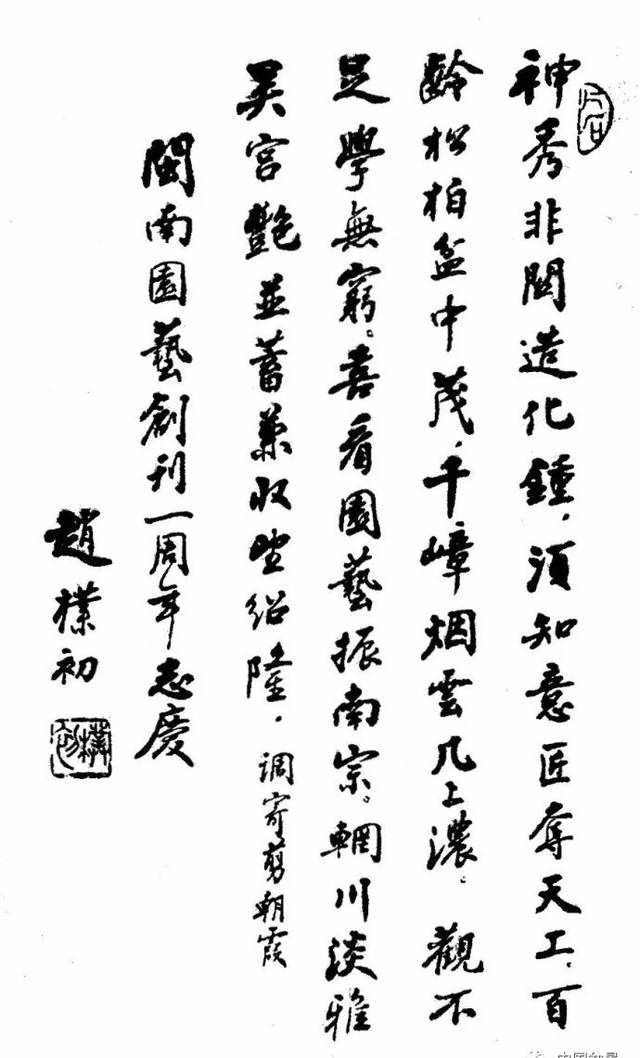 神秀非關造化鍾，須知意匠奪天工，百
齡松柏盆中茂，千嶂烟雲几上濃。觀不
足學無窮。喜看園藝振南宗。輞川淡雅
吴宫艷並蓄兼收望紹隆．调寄剪朝霞
閩南園藝創刊一周年志慶
趙樸初